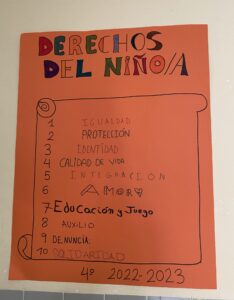 DERECHOS
DEL NIÑO/A
1 IGUALDAD
2 PROTECCIÓN
3 IDENTIDAD
4 CALIDAD DE VIDA
5 INTEGRACION
6 AMOR Y
7-Educación y Juego
8 AUXILIO
9 DENUNCIA:
10 SOLIDARIDAD
4º 2022-2023